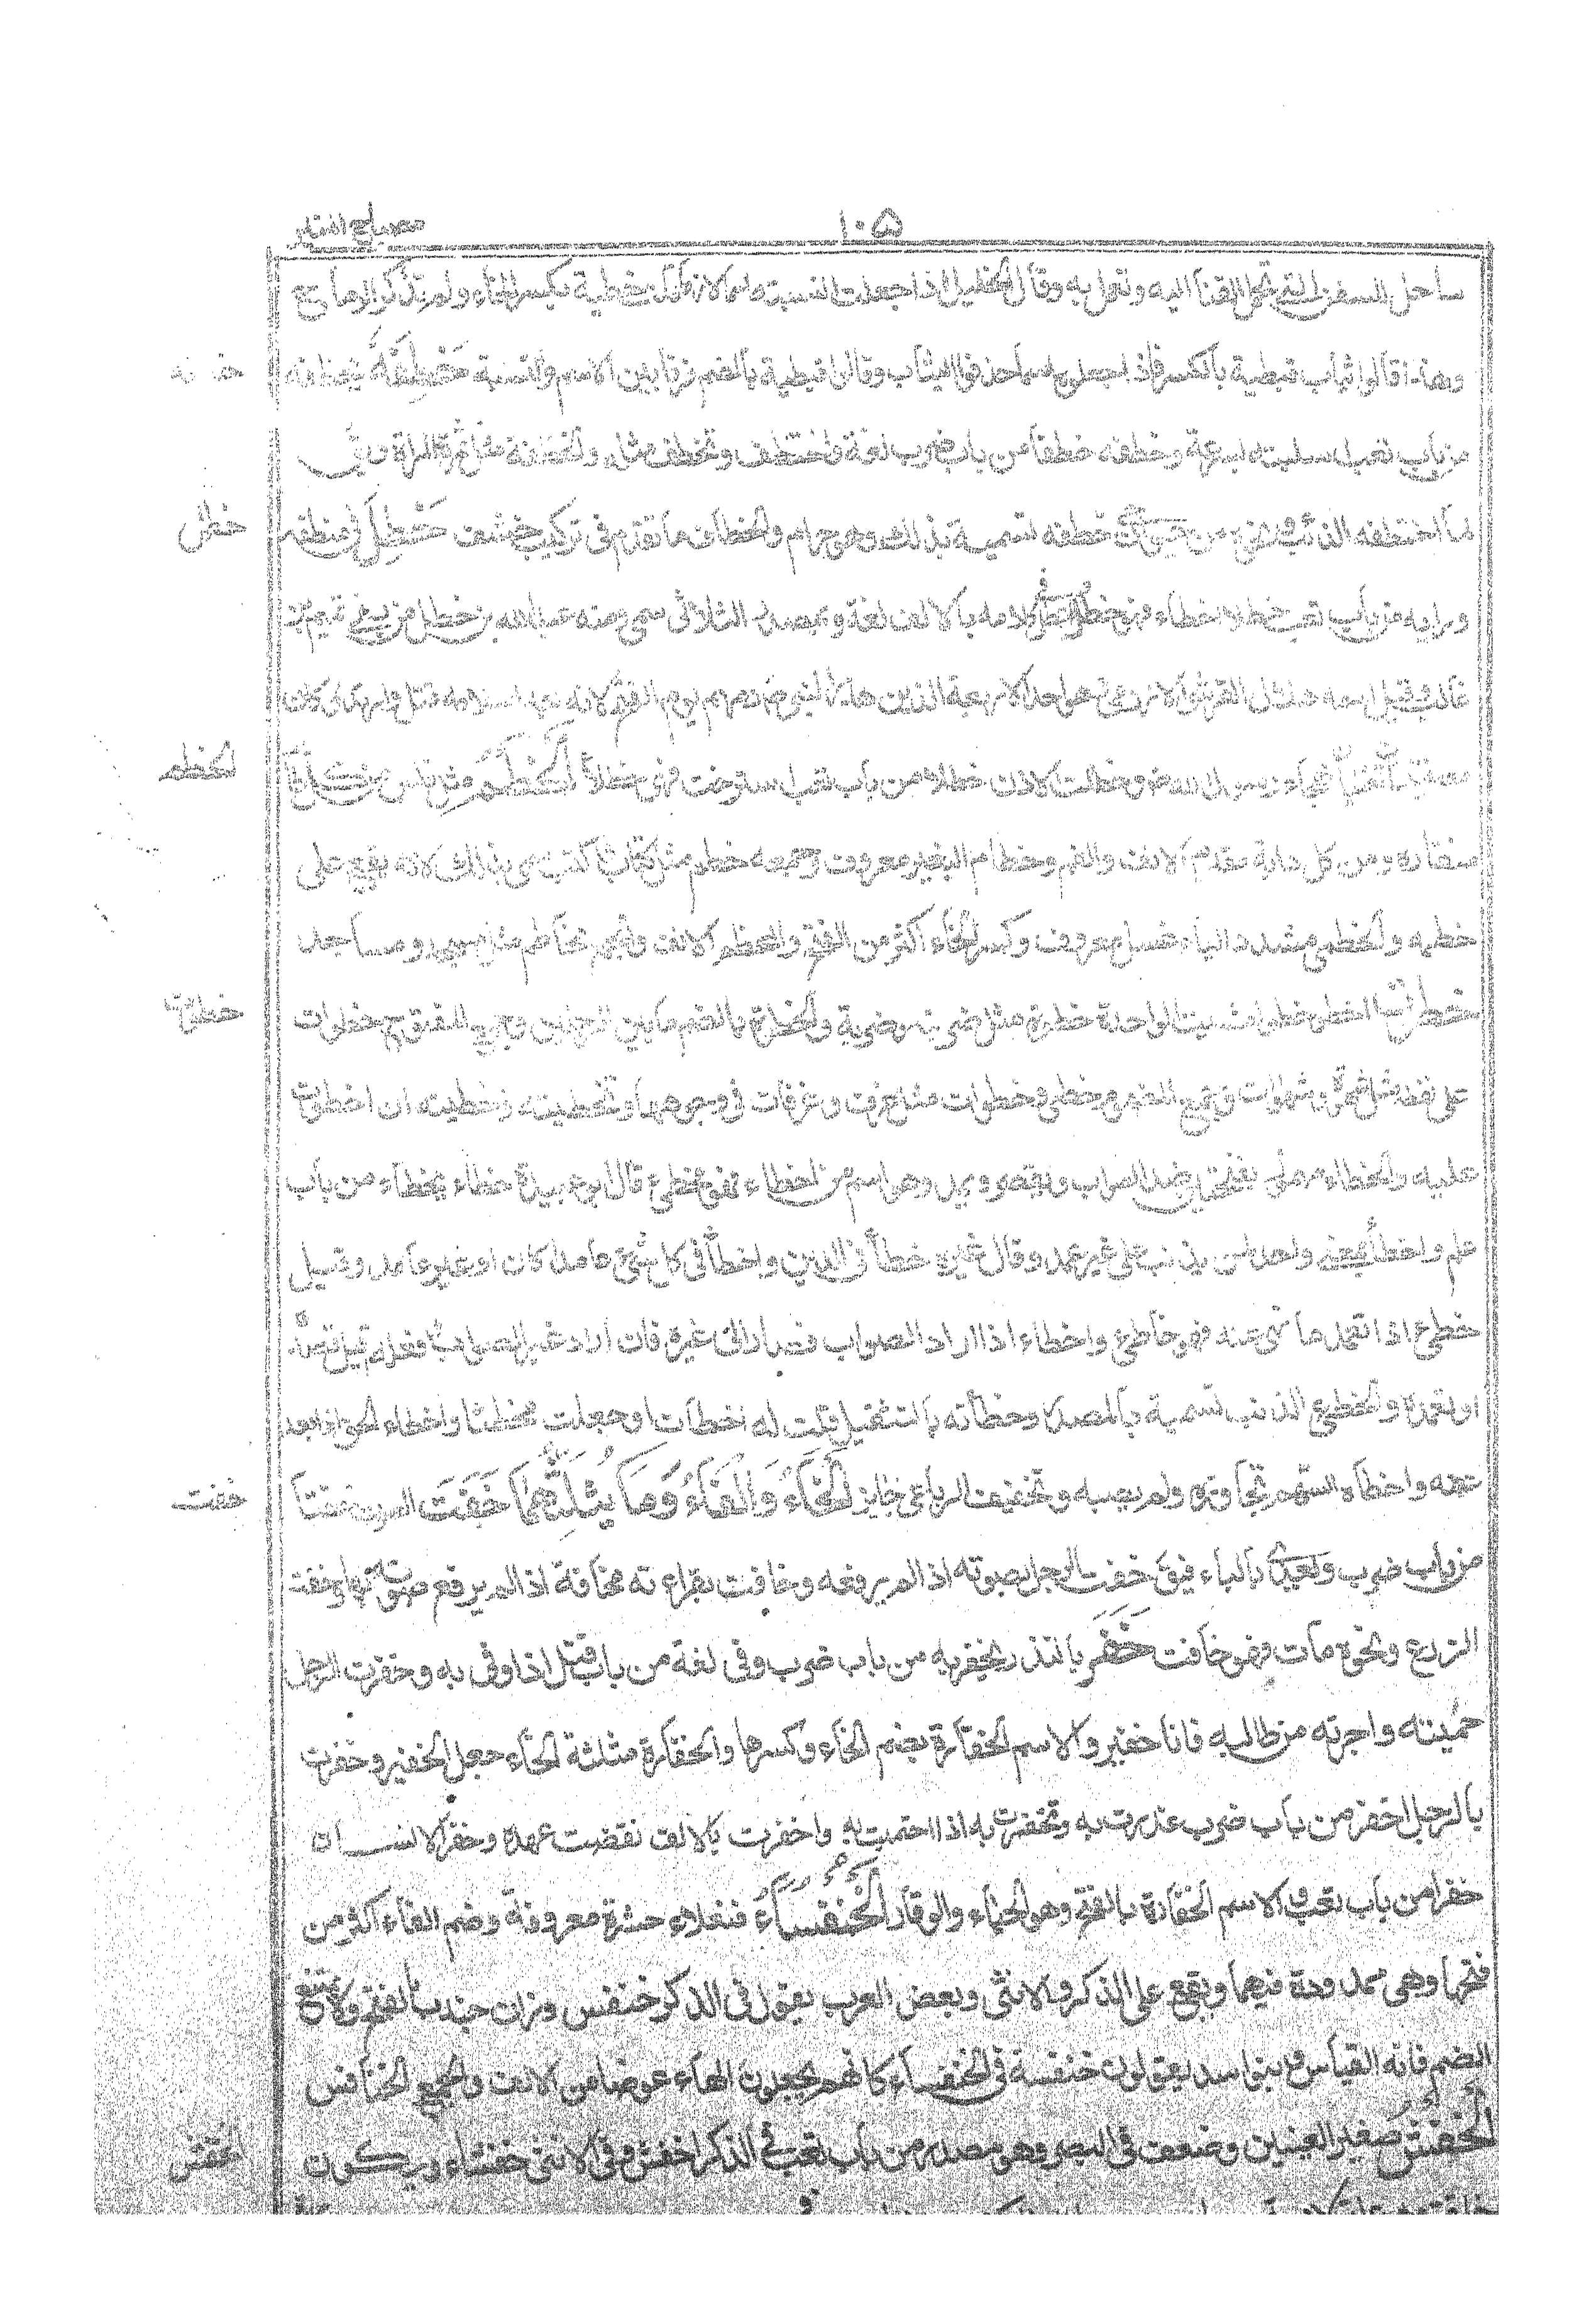 مصباح المنير
١٠٥
ساحل السفن التي تحمل القنا اليه وتعمل به وقال الخليل اذا جعلت النسبة اسما لازما قلت خطية بكسر الخاء ولم تذكر الرماح
وهذا قالوا ثياب قبطية بالكسر فاذا جعلوه اسما حذفوا الثياب وقالوا قبطية بالضم فرقا بين الاسم والنسبة خَطِفَهُ يخطفه
من باب تعب استلبه بسرعة وخطفه خطفا من باب ضرب لغة واختطف وتخطف مثله والخطفة مثل تمرة المرة
لما اختطفه الذئب ونحوه من حيوان خطفه تسمية بذلك وهو حرام والخطاف ما تقدم في تركيب خشف خَطِلَ في منطقه
خطل
ورايه من باب تعب خطلا اخطاء فهو خطل واخطل في كلامه بالالف لغة وبمصدر الثلاثي سمي ومنه عبد الله بن خطل من بني تيم بن
غالب وقيل اسمه هلال القرشي الادرمي وهو احد الاربعة الذين هدر النبي دمهم يوم الفتح لانه بعد اسلامه قتل وارتد وكان
معه قينتان تغنيان بهجاء رسول الله وخطلت الاذن خطلا من باب تعب استرخت فهي خطلاء اَلْخَطْمُ مثل فلس من كل طائر
الخطم
منقاره ومن كل دابة مقدم الانف والفم وخطام البعير معروف وجمعه خطم مثل كتاب وكتب سمي بذلك لانه يقع على
خطمه والخطمي مشدد الياء غسل معروف وكسر الخاء اكثر من الفتح والمخطم الانف والجمع مخاطم مثل مسجد ومساجد
خطوت اخطو خطوا مشيت الواحدة خطوة مثل ضرب وضربة والخطوة بالضم ما بين الرجلين وجمع المفتوح خطوات
خطوت
على لفظه مثل شهوة وشهوات وجمع المضموم خطى وخطوات مثل غرف وغرفات في وجوهها وتخطيته وخطيته اذا خطوت
عليه والخطاء مهموز بفتحتين ضد الصواب ويقصر ويمد وهو اسم من اخطاء فهو مخطئ قال ابو عبيدة خطاء يخطاء من باب
علم واخطأ بمعنى واحد لمن يذنب على غير عمد وقال غيره خطأ في الدين واخطأ في كل شيء عامدا كان او غير عامد وقيل
خطئ اذا تعمد ما نهي عنه فهو خاطئ واخطاء اذا اراد الصواب فصار الى غيره فان اراد غير الصواب وفعله قيل قصده
او تعمده والخطء الذنب تسمية بالمصدر وخطأته بالتثقيل قلت له اخطات او جعلت مخطئا واخطاء الحق اذا بعد
عنه واخطأه السهم تجاوزه ولم يصبه وتخفيف الرباعي جائز اَلْخَاءُ وَالْفَاءُ وَمَا يُثَلِّثُهُمَا خَفَتَ الصوت خفتا
خفت
من باب ضرب ويعدى بالباء فيق خفت الرجل بصوته اذا لم يرفعه وخافت بقراءته مخافة اذا لم يرفع صوته بها وخفت
الزرع ونحوه مات فهو خافت خَفَرَ بالعهد يخفر به من باب ضرب وفي لغة من باب قتل اذا وفى به وخفرت الرجل
حميته واجرته من طالبه فانا خفير والاسم الخفارة بضم الخاء وكسرها والخفارة مثلثة الخاء جعل الخفير وخفرت
بالرجل اخفر من باب ضرب غدرت به وتخفرت به اذا احتميت به واخفرت بالالف نقضت عهده وخفر الانسان
خفرا من باب تعب والاسم الخفارة بالفتح وهو الحياء والوقار الْخُنْفَسَاءُ فنعلاء حشرة معروفة وضم الفاء اكثر من
فتحها وهي ممدودة فيهما ويقع على الذكر والانثى وبعض العرب يقول في الذكر خنفس وزان جندب بالفتح ولا يمتنع
الضم فانه القياس وبنو اسد يقولون خنفسة في الخنفساء كانهم يجعلون الهاء عوضا من الالف والجمع الخنافس
اَلْخَفَشُ صغير العينين وضعف في البصر وهو مصدر من باب تعب فالذكر اخفش وفي الانثى خفشاء ويكون
الخفش